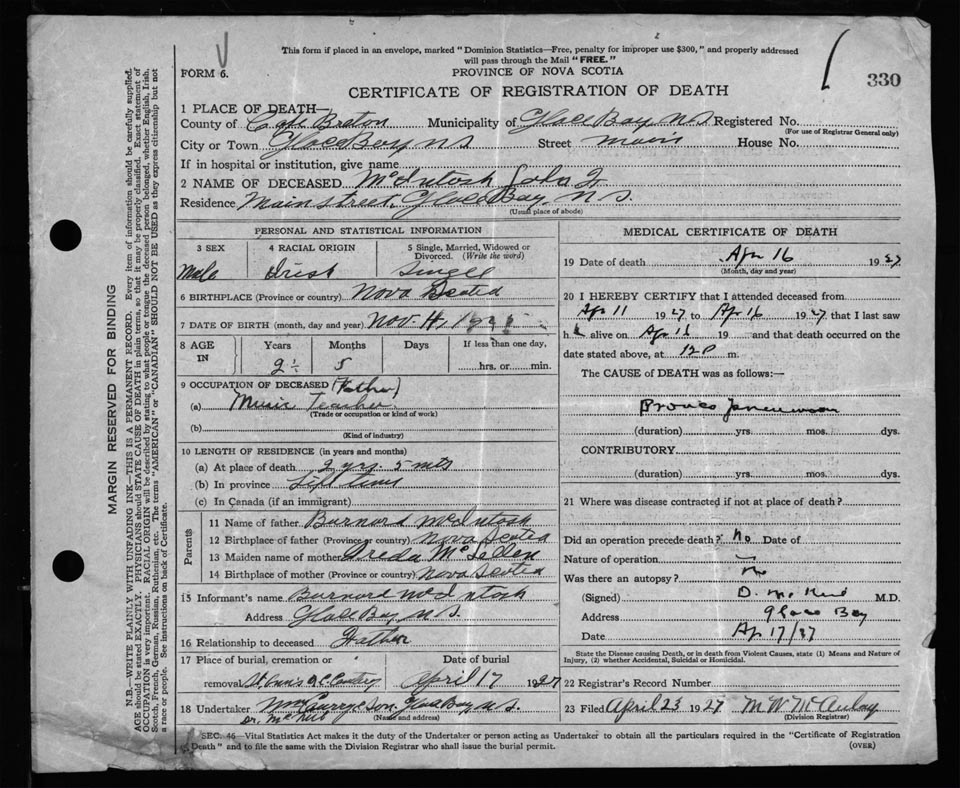 This form if placed in an envelope, marked "Dominion Statistics—Free, penalty for improper use $300," and properly addressed
will pass through the Mail "FREE."
FORM 6.
PROVINCE OF NOVA SCOTIA
330
CERTIFICATE OF REGISTRATION OF DEATH
1 PLACE OF DEATH—
County of Cape Breton Municipality of Glace Bay, NS Registered No.
(For use of Registrar General only)
City or Town Glace Bay NS Street Main House No.
If in hospital or institution, give name
2 NAME OF DECEASED McIntosh John
Residence Main street, Glace Bay, N S.
(Usual place of abode)
PERSONAL AND STATISTICAL INFORMATION
3 SEX 4 RACIAL ORIGIN 5 Single, Married, Widowed or
Divorced. (Write the word)
Male Irish Single
6 BIRTHPLACE (Province or country) Nova Scotia
7 DATE OF BIRTH (month, day and year) Nov.
8 AGE IN Years Months Days If less than one day,
2 5 hrs. or min.
9 OCCUPATION OF DECEASED (Father)
(a) Music Teacher
(Trade or occupation or kind of work)
(b)
(Kind of industry)
10 LENGTH OF RESIDENCE (in years and months)
(a) At place of death 2 yrs. 5 mts
(b) In province Life time
(c) In Canada (if an immigrant)
Parents
11 Name of father Burnard McIntosh
12 Birthplace of father (Province or country) Nova Scotia
13 Maiden name of mother
14 Birthplace of mother (Province or country) Nova Scotia
15 Informant's name Burnard McIntosh
Address Glace Bay, N S.
16 Relationship to deceased Father
17 Place of burial, cremation or Date of burial
removal St. Ann's April 17 1927
18 Undertaker Curry & Son, Glace Bay N S.
(Name and address)
MEDICAL CERTIFICATE OF DEATH
19 Date of death Apr 16 1927
(Month, day and year)
20 I HEREBY CERTIFY that I attended deceased from
Apr 11 1927 to Apr 16 1927 that I last saw
h alive on Apr 16 19 and that death occurred on the
date stated above, at 12 P m.
The CAUSE of DEATH was as follows:—
Bronco
(duration) yrs. mos. dys.
CONTRIBUTORY
(duration) yrs. mos. dys.
21 Where was disease contracted if not at place of death?
Did an operation precede death? No Date of
Nature of operation
Was there an autopsy? No
(Signed) D. M.D.
Address Glace Bay
Date Ap 17/27
State the Disease causing Death, or in death from Violent Causes, state (1) Means and Nature of
Injury, (2) whether Accidental, Suicidal or Homicidal.
22 Registrar's Record Number
23 Filed April 23 1927 M W McAulay
(Division Registrar)
SEC. 46—Vital Statistics Act makes it the duty of the Undertaker or person acting as Undertaker to obtain all the particulars required in the "Certificate of Registration
of Death" and to file the same with the Division Registrar who shall issue the burial permit. (OVER)
MARGIN RESERVED FOR BINDING
N.B.—WRITE PLAINLY WITH UNFADING INK—THIS IS A PERMANENT RECORD. Every item of information should be carefully supplied.
AGE should be stated EXACTLY. PHYSICIANS should STATE CAUSE OF DEATH in plain terms, so that it may be properly classified. Exact statement of
OCCUPATION is very important. RACIAL ORIGIN will be described by stating to what people or tongue the deceased person belonged, whether English, Irish,
Scotch, French, German, Russian, Ruthenian, etc. The terms "AMERICAN" or "CANADIAN" SHOULD NOT BE USED as they express citizenship but not
a race or people. See instructions on back of Certificate.